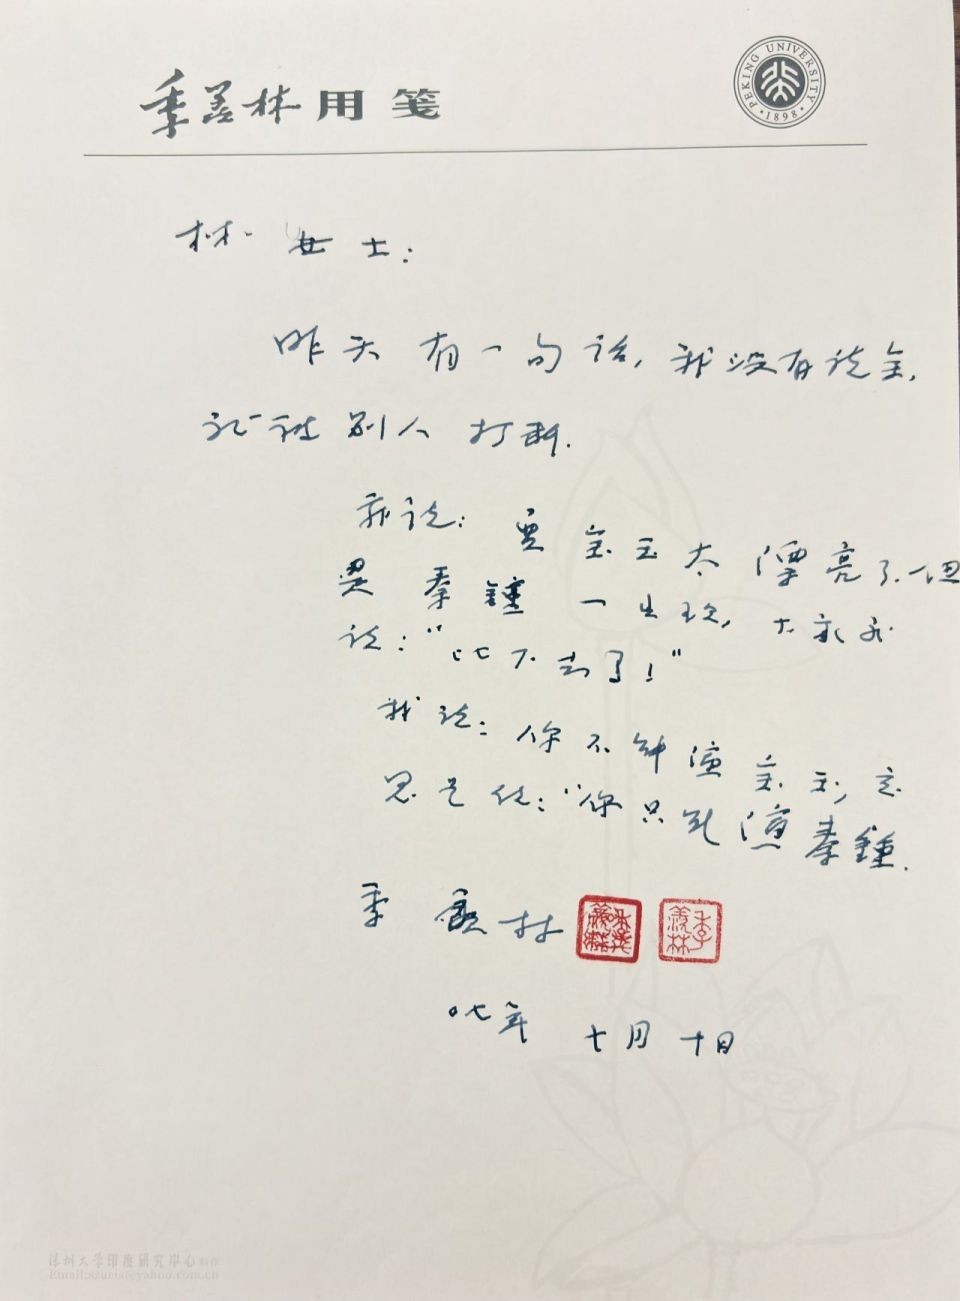 季羡林用笺
PEKING UNIVERSITY
1898
林 女士：
昨天有一句话，我没有说全，
就被别人打断．
我说：贾宝玉太漂亮了．但
是秦鍾一出现，大家都
说：“比不去了！”
我说：你不能演宝玉，意
思是说：“你只能演秦鍾．
季羡林
季羡林
〇七年 七月 十日
深圳大学印度研究中心制作
Email:szucis@yahoo.com.cn